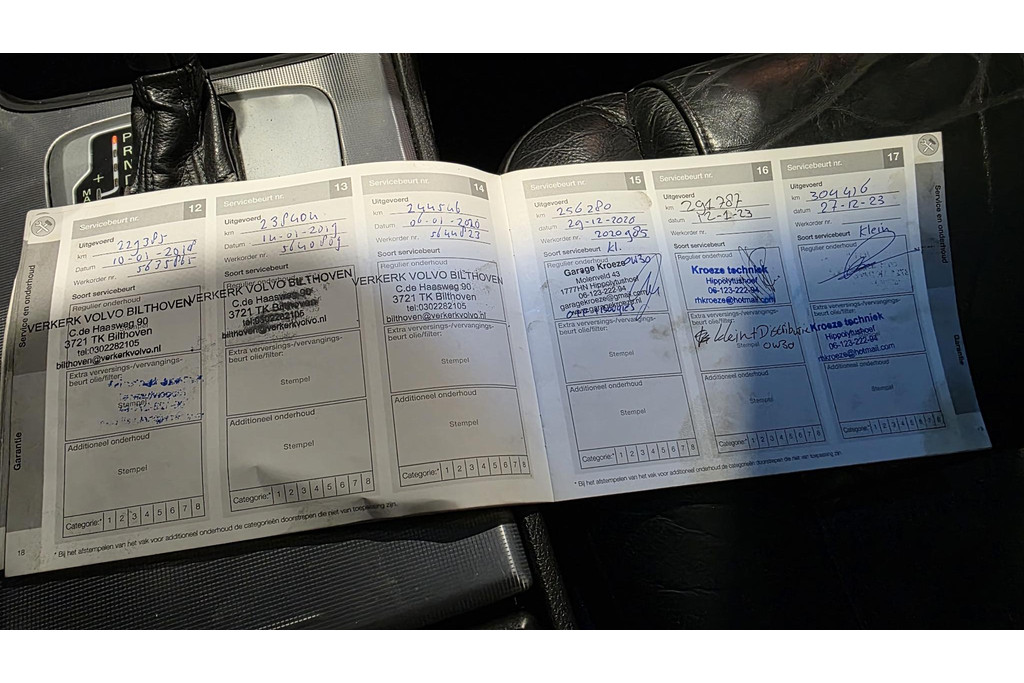 P
R
N
D
+
M
Service en onderhoud
Garantie
18
Servicebeurt nr. 12
Uitgevoerd
km 229385
Datum 10-01-2018
Werkorder nr. 5635865
Soort servicebeurt
Regulier onderhoud
VERKERK VOLVO BILTHOVEN
C.de Haasweg 90
3721 TK Bilthoven
tel:0302282105
bilthoven@verkerkvolvo.nl
Extra verversings-/vervangings-
beurt olie/filter:
Stempel
Additioneel onderhoud
Stempel
Categorie:* 1 2 3 4 5 6 7 8
Servicebeurt nr. 13
Uitgevoerd
km 238404
Datum 14-01-2019
Werkorder nr. 5640809
Soort servicebeurt
Regulier onderhoud
VERKERK VOLVO BILTHOVEN
C.de Haasweg 90
3721 TK Bilthoven
tel:0302282105
bilthoven@verkerkvolvo.nl
Extra verversings-/vervangings-
beurt olie/filter:
Stempel
Additioneel onderhoud
Stempel
Categorie:* 1 2 3 4 5 6 7 8
Servicebeurt nr. 14
Uitgevoerd
km 244546
datum 06-01-2020
Werkorder nr. 5644823
Soort servicebeurt
Regulier onderhoud
VERKERK VOLVO BILTHOVEN
C.de Haasweg 90
3721 TK Bilthoven
tel:0302282105
bilthoven@verkerkvolvo.nl
Extra verversings-/vervangings-
beurt olie/filter:
Stempel
Additioneel onderhoud
Stempel
Categorie:* 1 2 3 4 5 6 7 8
* Bij het afstempelen van het vak voor additioneel onderhoud de categorieën doorstrepen die niet van toepassing zijn.
Servicebeurt nr. 15
Uitgevoerd
km 256280
datum 29-12-2020
Werkorder nr. 2020985
Soort servicebeurt kl.
Regulier onderhoud 0W30
Garage Kroeze
Molenveld 43
1777HN Hippolytushoef
06-123-222-94
garagekroeze@gmail.com
Extra verversings-/vervangings-
beurt olie/filter:
Stempel
Additioneel onderhoud
Stempel
Categorie:* 1 2 3 4 5 6 7 8
Servicebeurt nr. 16
Uitgevoerd
km 291787
datum 12-1-23
Werkorder nr.
Soort servicebeurt
Regulier onderhoud
Kroeze techniek
Hippolytushoef
06-123-222-94
rhkroeze@hotmail.com
Extra verversings-/vervangings-
klein + Distributie
Stempel
0W30
Additioneel onderhoud
Stempel
Categorie:* 1 2 3 4 5 6 7 8
Servicebeurt nr. 17
Uitgevoerd
km 304416
datum 27-12-23
Werkorder nr.
Soort servicebeurt klein
Regulier onderhoud
Extra verversings-/vervangings-
beurt olie/filter:
Kroeze techniek
Hippolytushoef
06-123-222-94
rhkroeze@hotmail.com
Additioneel onderhoud
Stempel
Categorie:* 1 2 3 4 5 6 7 8
* Bij het afstempelen van het vak voor additioneel onderhoud de categorieën doorstrepen die niet van toepassing zijn.
Service en onderhoud
Garantie